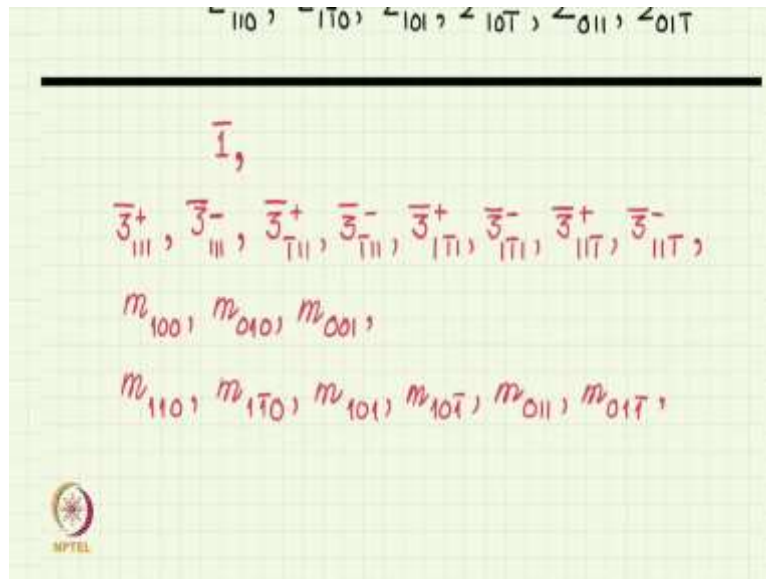 2₁₁₀, 2₁1̄₀, 2₁₀₁, 2₁₀1̄, 2₀₁₁, 2₀₁1̄
1̄,
3̄⁺₁₁₁, 3̄⁻₁₁₁, 3̄⁺1̄₁₁, 3̄⁻1̄₁₁, 3̄⁺₁1̄₁, 3̄⁻₁1̄₁, 3̄⁺₁₁1̄, 3̄⁻₁₁1̄,
m₁₀₀, m₀₁₀, m₀₀₁,
m₁₁₀, m₁1̄₀, m₁₀₁, m₁₀1̄, m₀₁₁, m₀₁1̄,
NPTEL